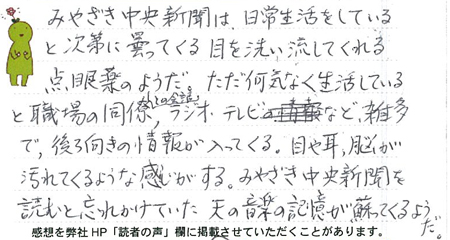 みやざき中央新聞は、日常生活をしている
と次第に曇ってくる目を洗い流してくれる
点眼薬のようだ。ただ何気なく生活している
と職場の同僚との会話、ラジオ・テレビなど、雑多
で、後ろ向きの情報が入ってくる。目や耳、脳が
汚れてくるような感じがする。みやざき中央新聞を
読むと忘れかけていた天の音楽の記憶が蘇ってくるようだ。
感想を弊社HP「読者の声」欄に掲載させていただくことがあります。